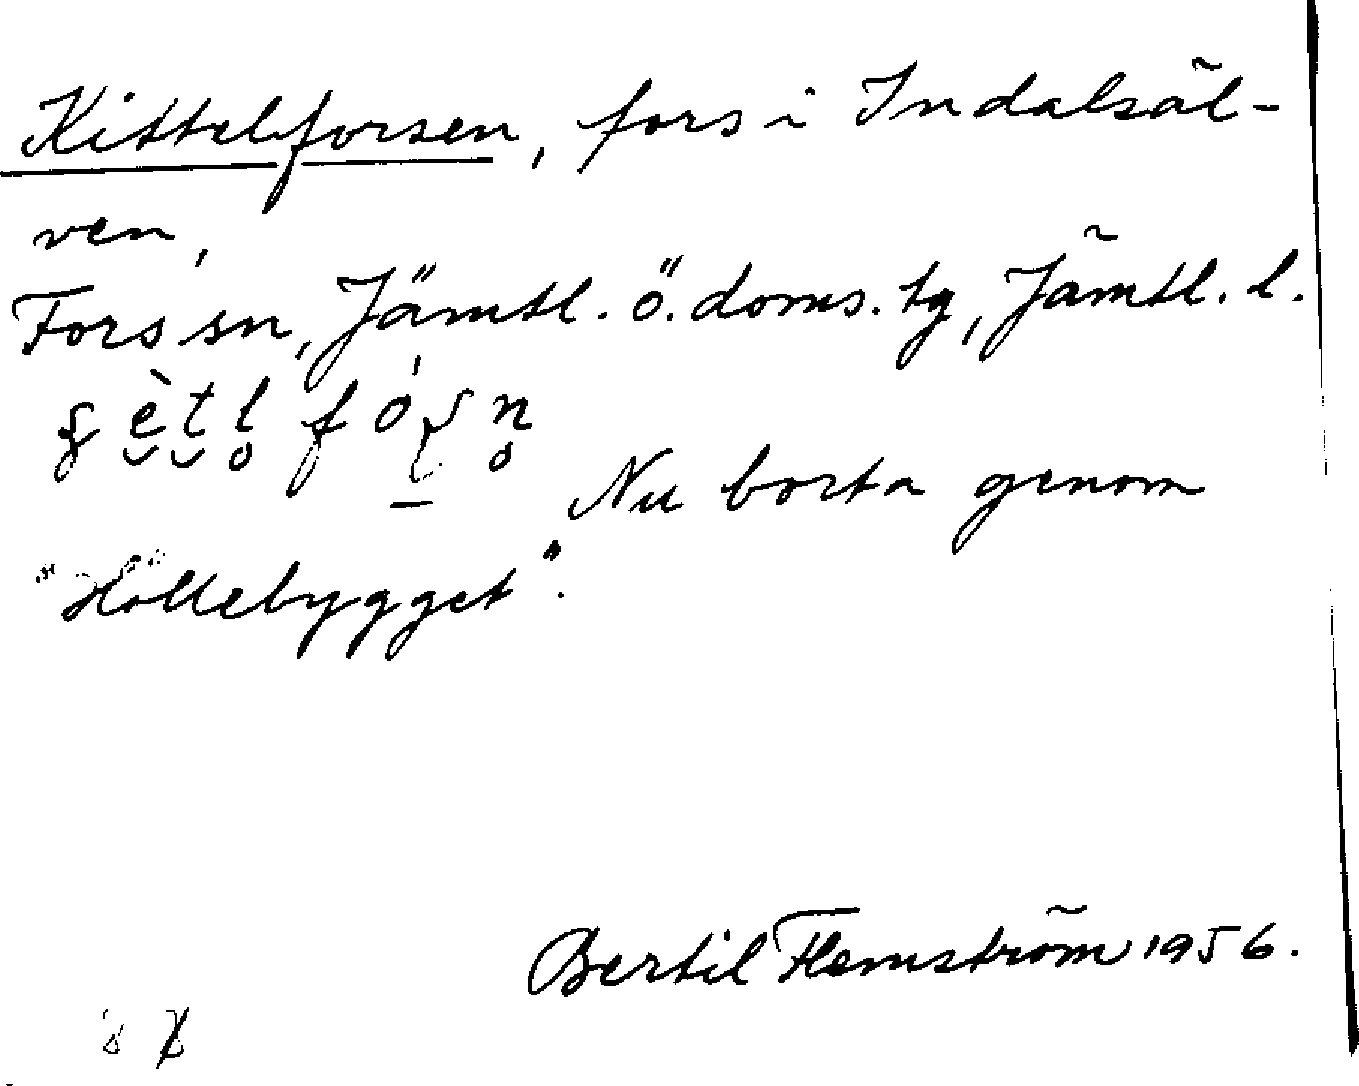 Kittelforsen, fors i Indalsäl-
ven,
Fors sn, Jämtl. ö. doms. tg, Jämtl. l.
Nu borta genom
"Höllebygget".
Bertil Flemström 1956.